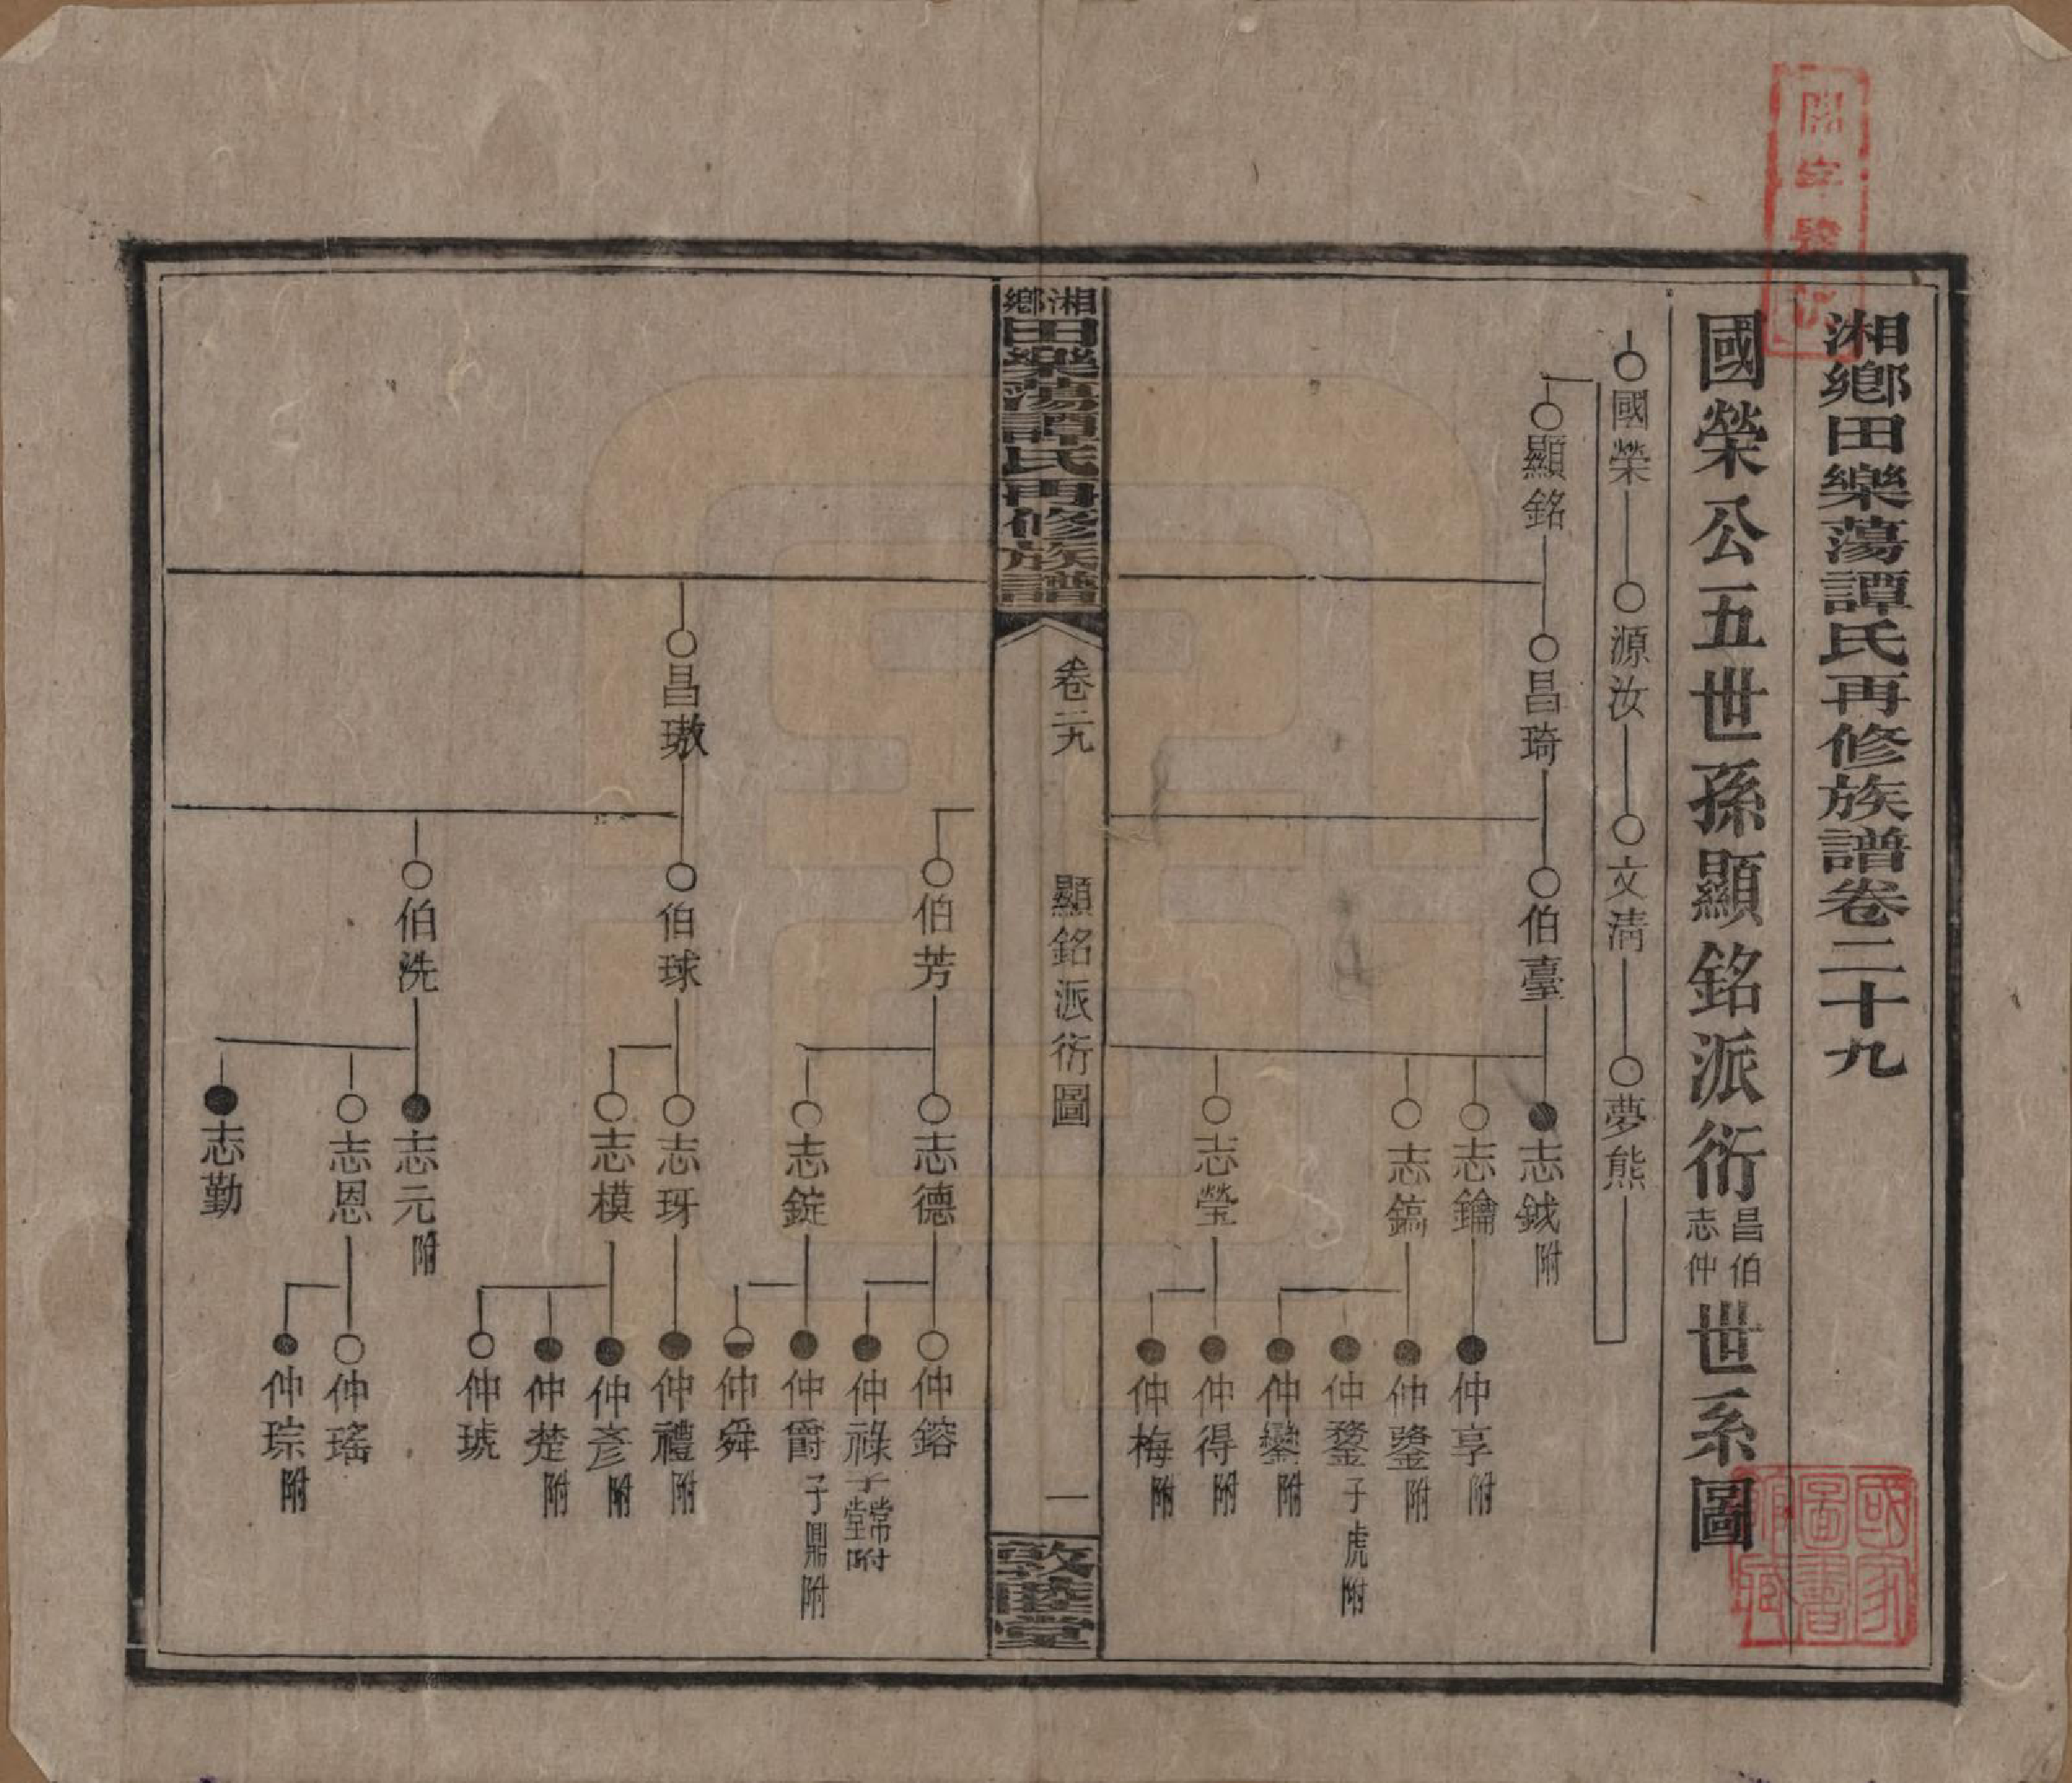 湘鄉田樂蕩譚氏再修族譜卷二十九
國榮公五世孫顯銘派衍昌伯志仲世系圖
國榮 源汝 文清 夢熊
顯銘 昌琦 伯臺 志鉞附
志鑰 仲享附
志鎬 仲鎏附
仲鍪子虎附
仲鑾附
志瑩 仲得附
仲梅附
湘鄉田樂蕩譚氏再修族譜 卷二十九 顯銘派衍圖 一 敦睦堂
伯芳 志德 仲鎔
仲祿子常堂附
志錠 仲爵子鼎附
仲舜
昌璈 伯球 志玡 仲禮附
志模 仲彥附
仲楚附
仲琥
伯洗 志元附
志恩 仲瑤
仲琮附
志勤
國家圖書館藏